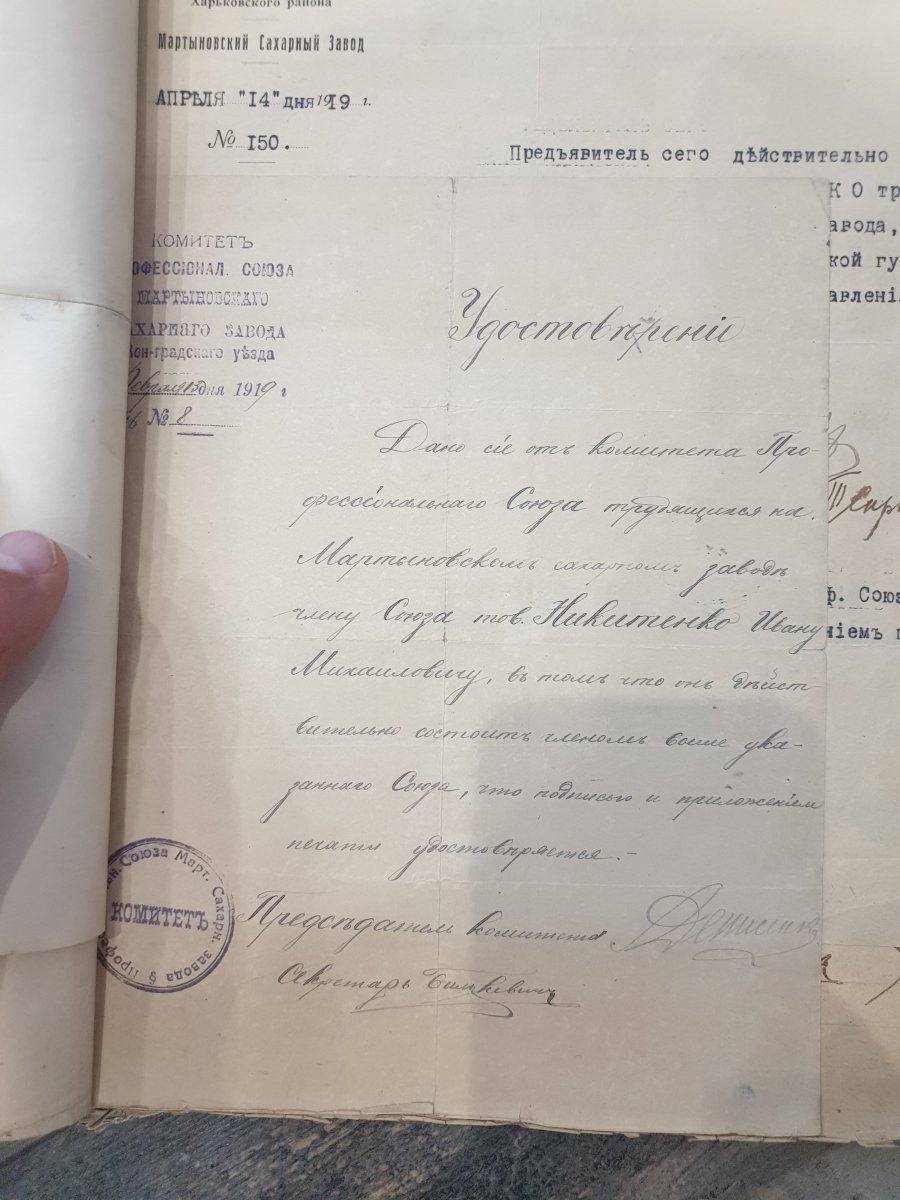 Харьковского района
Мартыновский Сахарный Завод
АПРѢЛЯ "14" дня 1919 г.
№ 150.
Предъявитель сего дѣйствительно
КО тр
авода,
кой гу
авленi
КОМИТЕТЪ
ОФЕССIОНАЛ. СОЮЗА
МАРТЫНОВСКАГО
АХАРНАГО ЗАВОДА
Кон-градскаго уѣзда
дня 1919 г
№ 8
Удостовѣренiе
Дано сiе отъ комитета Про-
фессiональнаго Союза трудящихся на
Мартыновскомъ сахарномъ заводѣ
члену Союза тов. Никитенко Ивану
Михайловичу, въ томъ что онъ дѣйст-
вительно состоитъ членомъ выше ука-
заннаго Союза, что подписью и приложенiем
печати удостовѣряется.-
Предсѣдатель комитета
Секретарь
ф. Союз
нiемъ п
Союза Март. Сахарн. завода § Проф
КОМИТЕТЪ